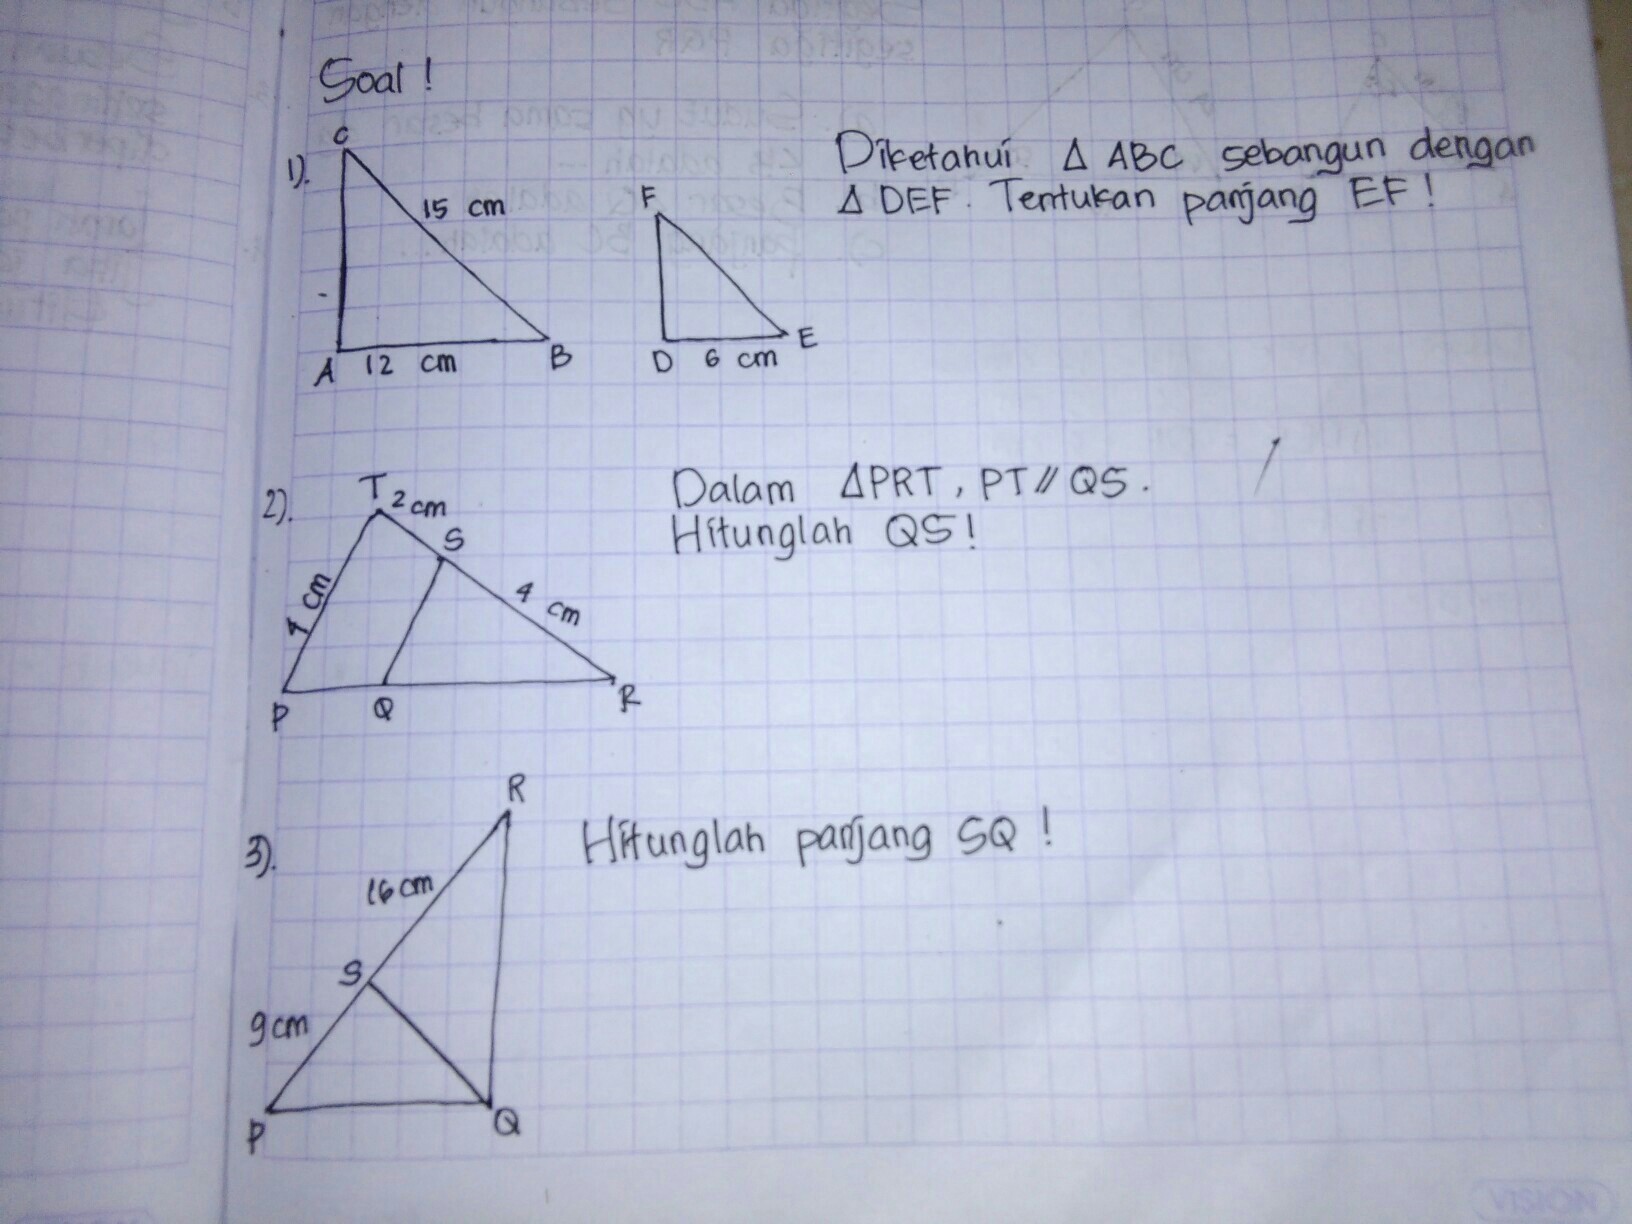 Soal !
1).
C
15 cm
A 12 cm B
F
D 6 cm E
Diketahui Δ ABC sebangun dengan
Δ DEF. Tentukan panjang EF !
2).
T 2 cm
S
4 cm
cm
P Q R
Dalam ΔPRT, PT // QS.
Hitunglah QS !
3).
R
16 cm
S
9 cm
P Q
Hitunglah panjang SQ !
VISION